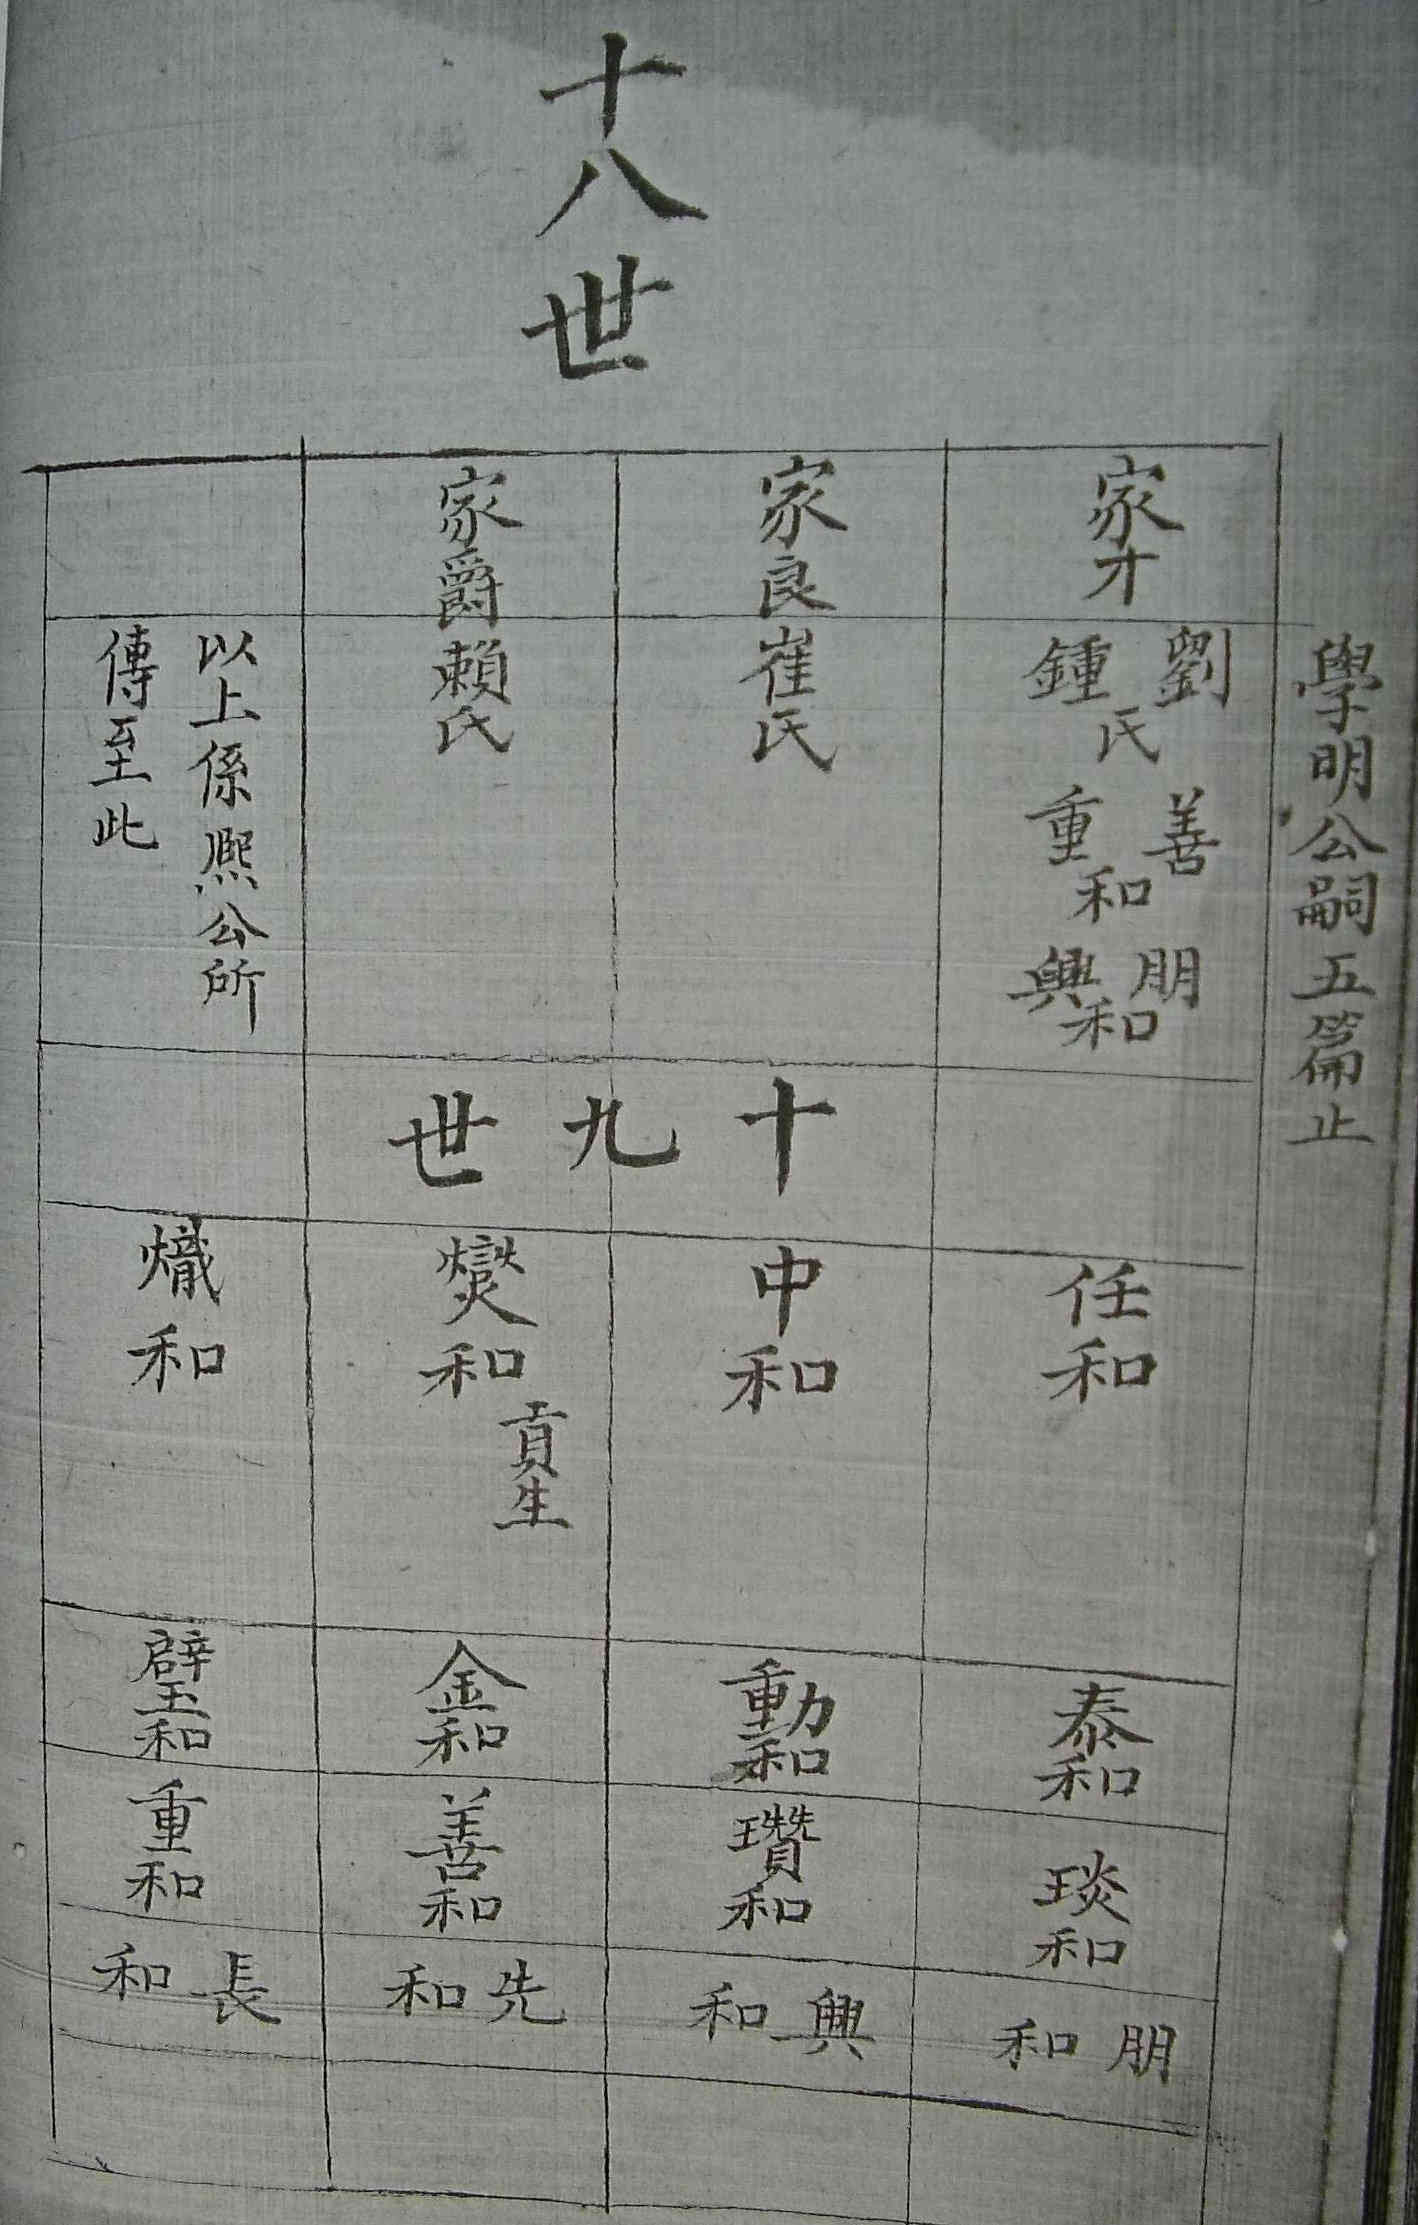 學明公嗣五篇止
十八世
家才
劉鍾氏
善重和
朋興和
家良
崔氏
家爵
賴氏
以上係熈公所
傳至此
十九世
任和
中和
燮和
貢生
熾和
泰和
動和
金和
璧和
琰和
瓚和
善和
重和
朋和
興和
先和
長和